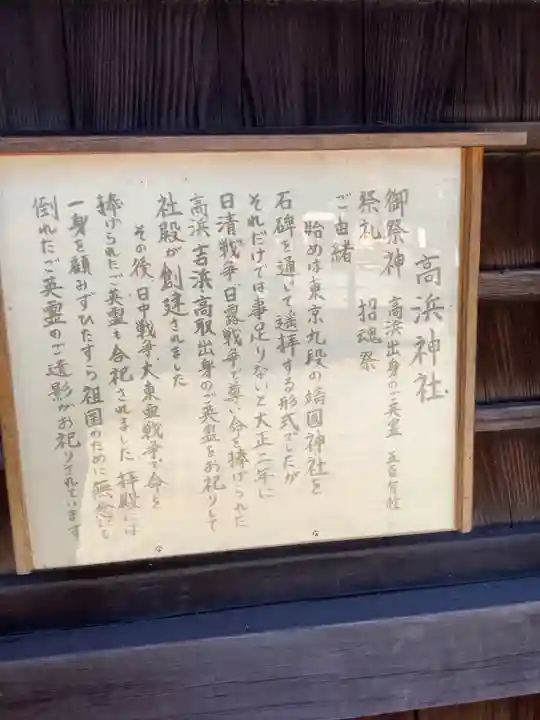 高浜神社
御祭神 高浜出身のご英霊 五百有餘
祭礼 招魂祭
ご由緒
始めは東京九段の靖国神社を
石碑を通いて遥拝する形式でしたが
それだけでは事足りないと大正二年に
日清戦争、日露戦争で尊い命を捧げられた
高浜、吉浜、高取出身のご英霊をお祀りして
社殿が創建されました
その後、日中戦争、大東亜戦争で命を
捧げられたご英霊も合祀されました 拝殿には
一身を顧みずひたすら祖国のために無念にも
倒れたご英霊のご遺影がお祀りされています